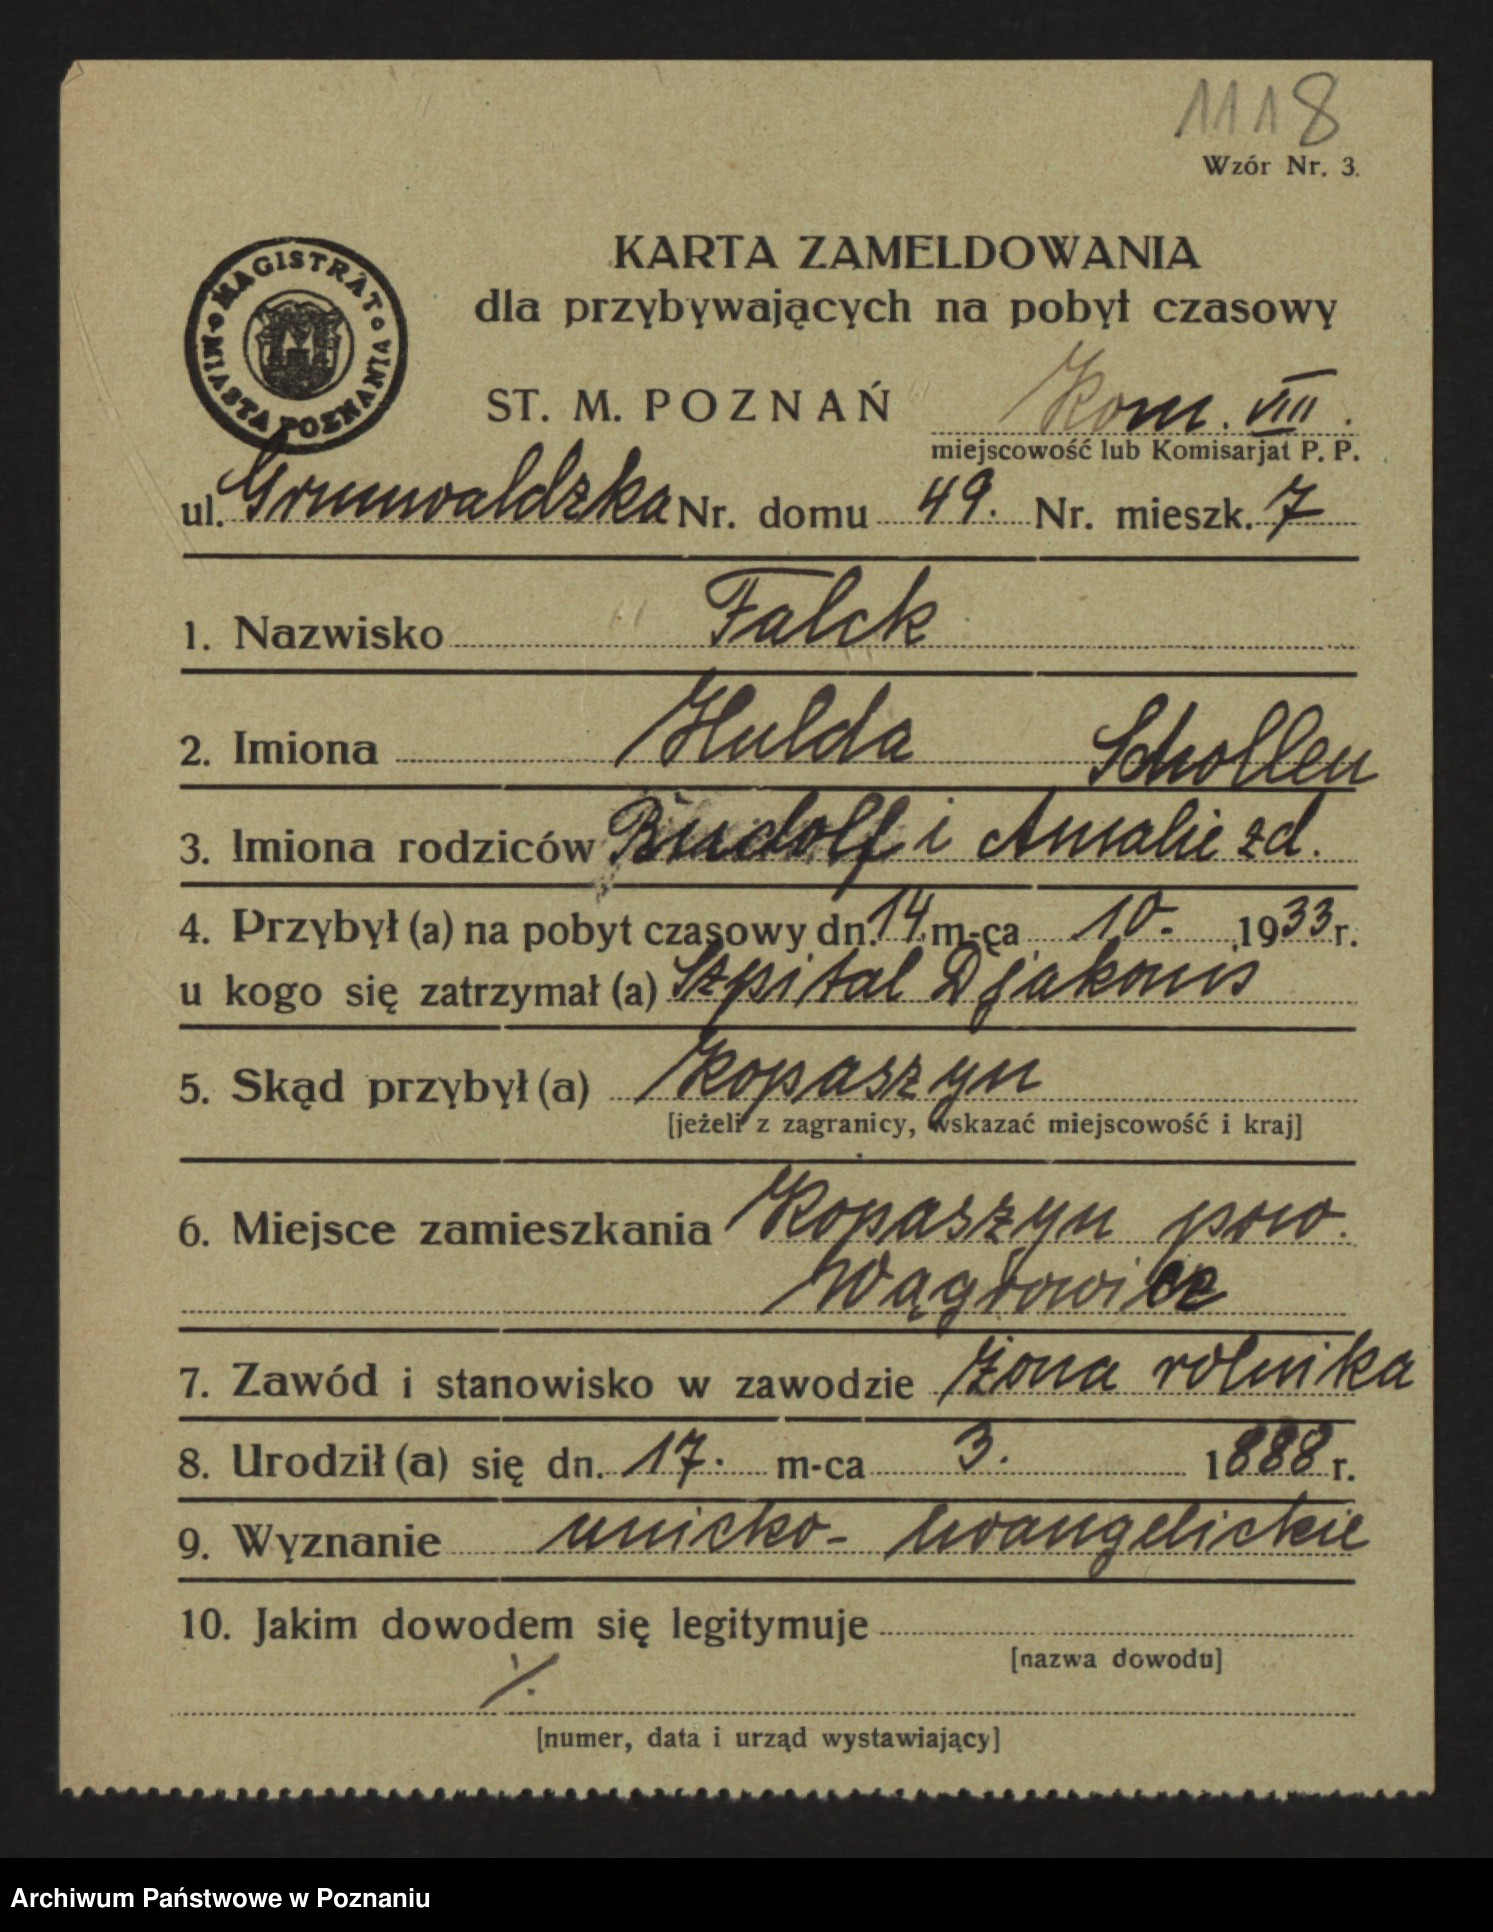 1118
Wzór Nr. 3.
MAGISTRAT MIASTA POZNANIA
KARTA ZAMELDOWANIA
dla przybywających na pobyt czasowy
ST. M. POZNAŃ Kom. VIII.
miejscowość lub Komisarjat P. P.
ul. Grunwaldzka Nr. domu 49. Nr. mieszk. 7
1. Nazwisko Falck
2. Imiona Hulda Schollen
3. Imiona rodziców Rudolf i Amalie zd.
4. Przybył (a) na pobyt czasowy dn. 14. m-ca 10. 1933 r.
u kogo się zatrzymał (a) Szpital Djakonis
5. Skąd przybył (a) Kopaszyn
[jeżeli z zagranicy, wskazać miejscowość i kraj]
6. Miejsce zamieszkania Kopaszyn pow.
Wągrowice
7. Zawód i stanowisko w zawodzie żona rolnika
8. Urodził (a) się dn. 17. m-ca 3. 1888 r.
9. Wyznanie unicko-ewangelickie
10. Jakim dowodem się legitymuje
[nazwa dowodu]
·/.
[numer, data i urząd wystawiający]
Archiwum Państwowe w Poznaniu